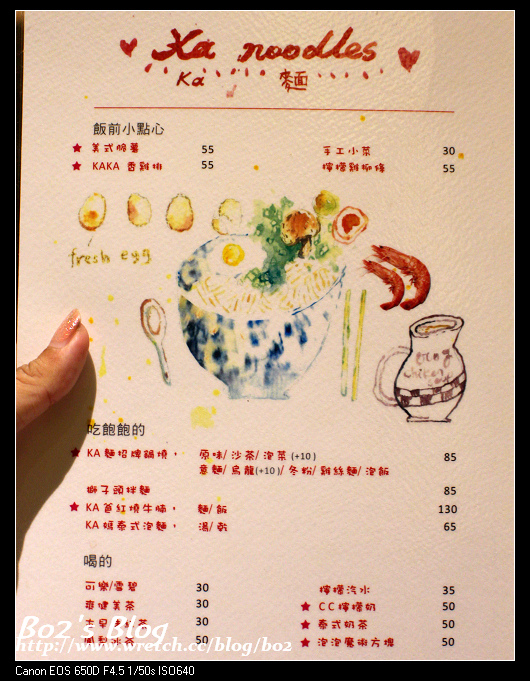 Ka noodles
Ka 麵
飯前小點心
★ 美式脆薯 55 手工小菜 30
★ KAKA 香雞排 55 檸檬雞柳條 55
fresh egg
★ KA 麵招牌鍋燒， 原味/ 沙茶/ 泡菜 (+10) 85
意麵/ 烏龍(+10)/ 冬粉/ 雞絲麵/ 泡飯
獅子頭拌麵 85
★ KA 爸紅燒牛腩， 麵/ 飯 130
KA 媽泰式泡麵， 湯/ 乾 65
吃飽飽的
喝的
可樂/雪碧 30 檸檬汽水 35
爽健美茶 30 ★ CC檸檬奶 50
30 ★ 泰式奶茶 50
50 ★ 泡泡魔術方塊 50
Bo2's Blog
http://www.wretch.cc/blog/bo2
Canon EOS 650D F4.5 1/50s ISO640